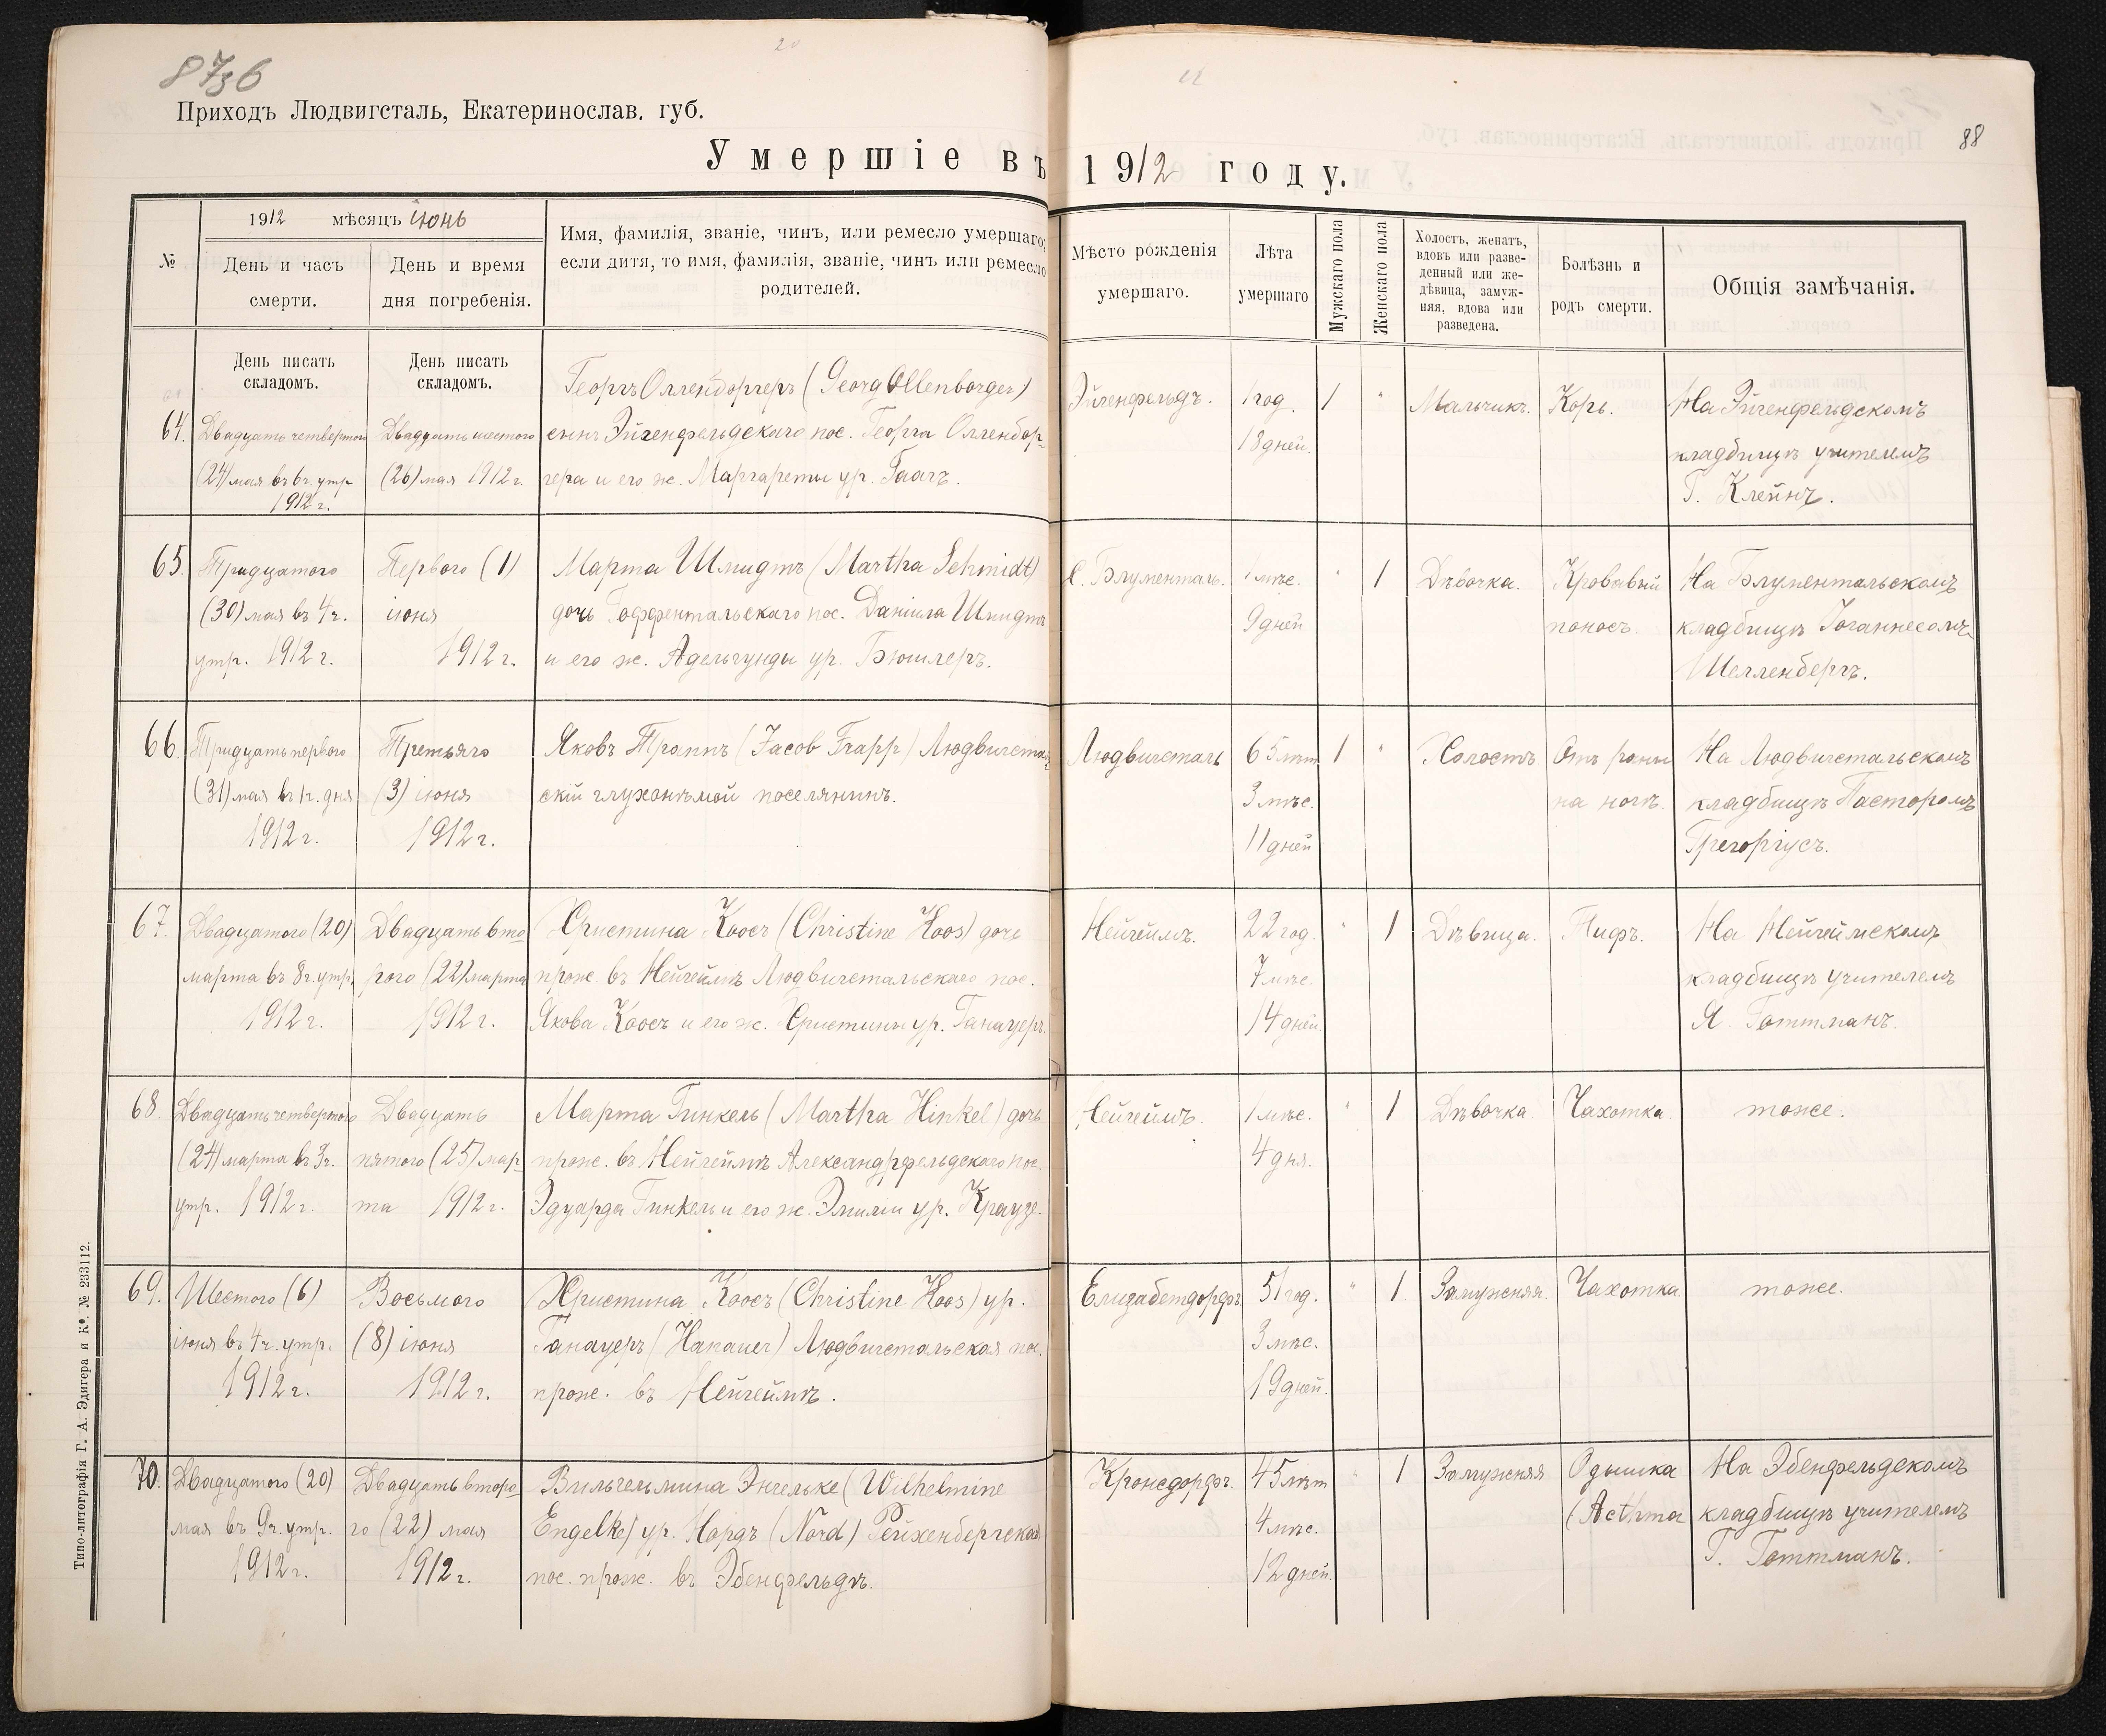 8736
20
Приходъ Людвигсталь, Екатеринослав. губ.
Умершіе въ 1912 году.
88
№
1912 мѣсяцъ іюнь
День и часъ смерти.
День и время дня погребенія.
Имя, фамилія, званіе, чинъ, или ремесло умершаго;
если дитя, то имя, фамилія, званіе, чинъ или ремесло
родителей.
Мѣсто рожденія
умершаго.
Лѣта
умершаго
Мужскаго пола
Женскаго пола
Холостъ, женатъ,
вдовъ или разве-
денный или же-
дѣвица, замуж-
няя, вдова или
разведена.
Болѣзнь и
родъ смерти.
Общія замѣчанія.
День писать
складомъ.
День писать
складомъ.
64.
Двадцать четвертого
(24) мая въ 6 ч. утр
1912 г.
Двадцать шестого
(26) мая 1912 г.
Георгъ Оллендоргеръ (Georg Ollenborger)
сынъ Эйгенфельдскаго пос. Георга Олленбор-
гера и его ж. Маргареты ур. Гаагъ.
Эйгенфельдъ.
1 год.
18 дней.
1
"
Мальчикъ.
Корь.
На Эйгенфельдскомъ
кладбищѣ учителемъ
Г. Клейнъ.
65.
Тридцатого
(30) мая въ 4 ч.
утр. 1912 г.
Первого (1)
іюня
1912 г.
Марта Шмидтъ (Martha Schmidt)
дочь Гоффентальскаго пос. Даніила Шмидтъ
и его ж. Адельгунды ур. Бюшлеръ.
С. Блументаль.
1 мѣс.
9 дней
"
1
Дѣвочка.
Кровавый
поносъ.
На Блументальскомъ
кладбищѣ Іоганнесомъ
Шелленбергъ.
66.
Тридцать первого
(31) мая въ 1 ч. дня
1912 г.
Третьяго
(3) іюня
1912 г.
Яковъ Траппъ (Jacob Trapp) Людвигсталь-
скій глухонѣмой поселянинъ.
Людвигсталь
65 лѣт
3 мѣс.
11 дней
1
"
Холостъ
Отъ раны
на ногѣ.
На Людвигстальскомъ
кладбищѣ Пасторомъ
Грегоріусъ.
67.
Двадцатого (20)
марта въ 8 ч. утр.
1912 г.
Двадцать вто
рого (22) марта
1912 г.
Христина Коосъ (Christine Koos) дочь
прож. въ Нейгеймѣ Людвигстальскаго пос.
Якова Коосъ и его ж. Христины ур. Ганауеръ.
Нейгеймъ.
22 год.
7 мѣс.
14 дней.
"
1
Дѣвица.
Тифъ.
На Нейгеймскомъ
кладбищѣ учителемъ
Я. Готтманъ.
68.
Двадцать четвертого
(24) марта въ 3 ч.
утр. 1912 г.
Двадцать
пятого (25) мар
та 1912 г.
Марта Гинкель (Martha Hinkel) дочь
прож. въ Нейгеймѣ Александрфельдскаго пос.
Эдуарда Гинкель и его ж. Эмиліи ур. Краузе.
Нейгеймъ.
1 мѣс.
4 дня.
"
1
Дѣвочка
Чахотка.
тоже.
69.
Шестого (6)
іюня въ 4 ч. утр.
1912 г.
Восьмого
(8) іюня
1912 г.
Христина Коосъ (Christine Koos) ур.
Ганауеръ (Hanauer) Людвигстальская пос.
прож. въ Нейгеймѣ.
Елизабетдорфъ.
51 год.
3 мѣс.
19 дней.
"
1
Замужняя.
Чахотка
тоже.
70.
Двадцатого (20)
мая въ 9 ч. утр.
1912 г.
Двадцать второ
го (22) мая
1912 г.
Вильгельмина Энгельке (Wilhelmine
Engelke) ур. Нордъ (Nord) Рейхенбергская
пос. прож. въ Эбенфельдѣ.
Кронсдорфъ.
45 лѣт
4 мѣс.
12 дней.
"
1
Замужняя
Одышка
(Asthma
На Эбенфельдскомъ
кладбищѣ учителемъ
Г. Готтманъ.
Типо-литографія Г. А. Эдигера и Ко. № 233112.